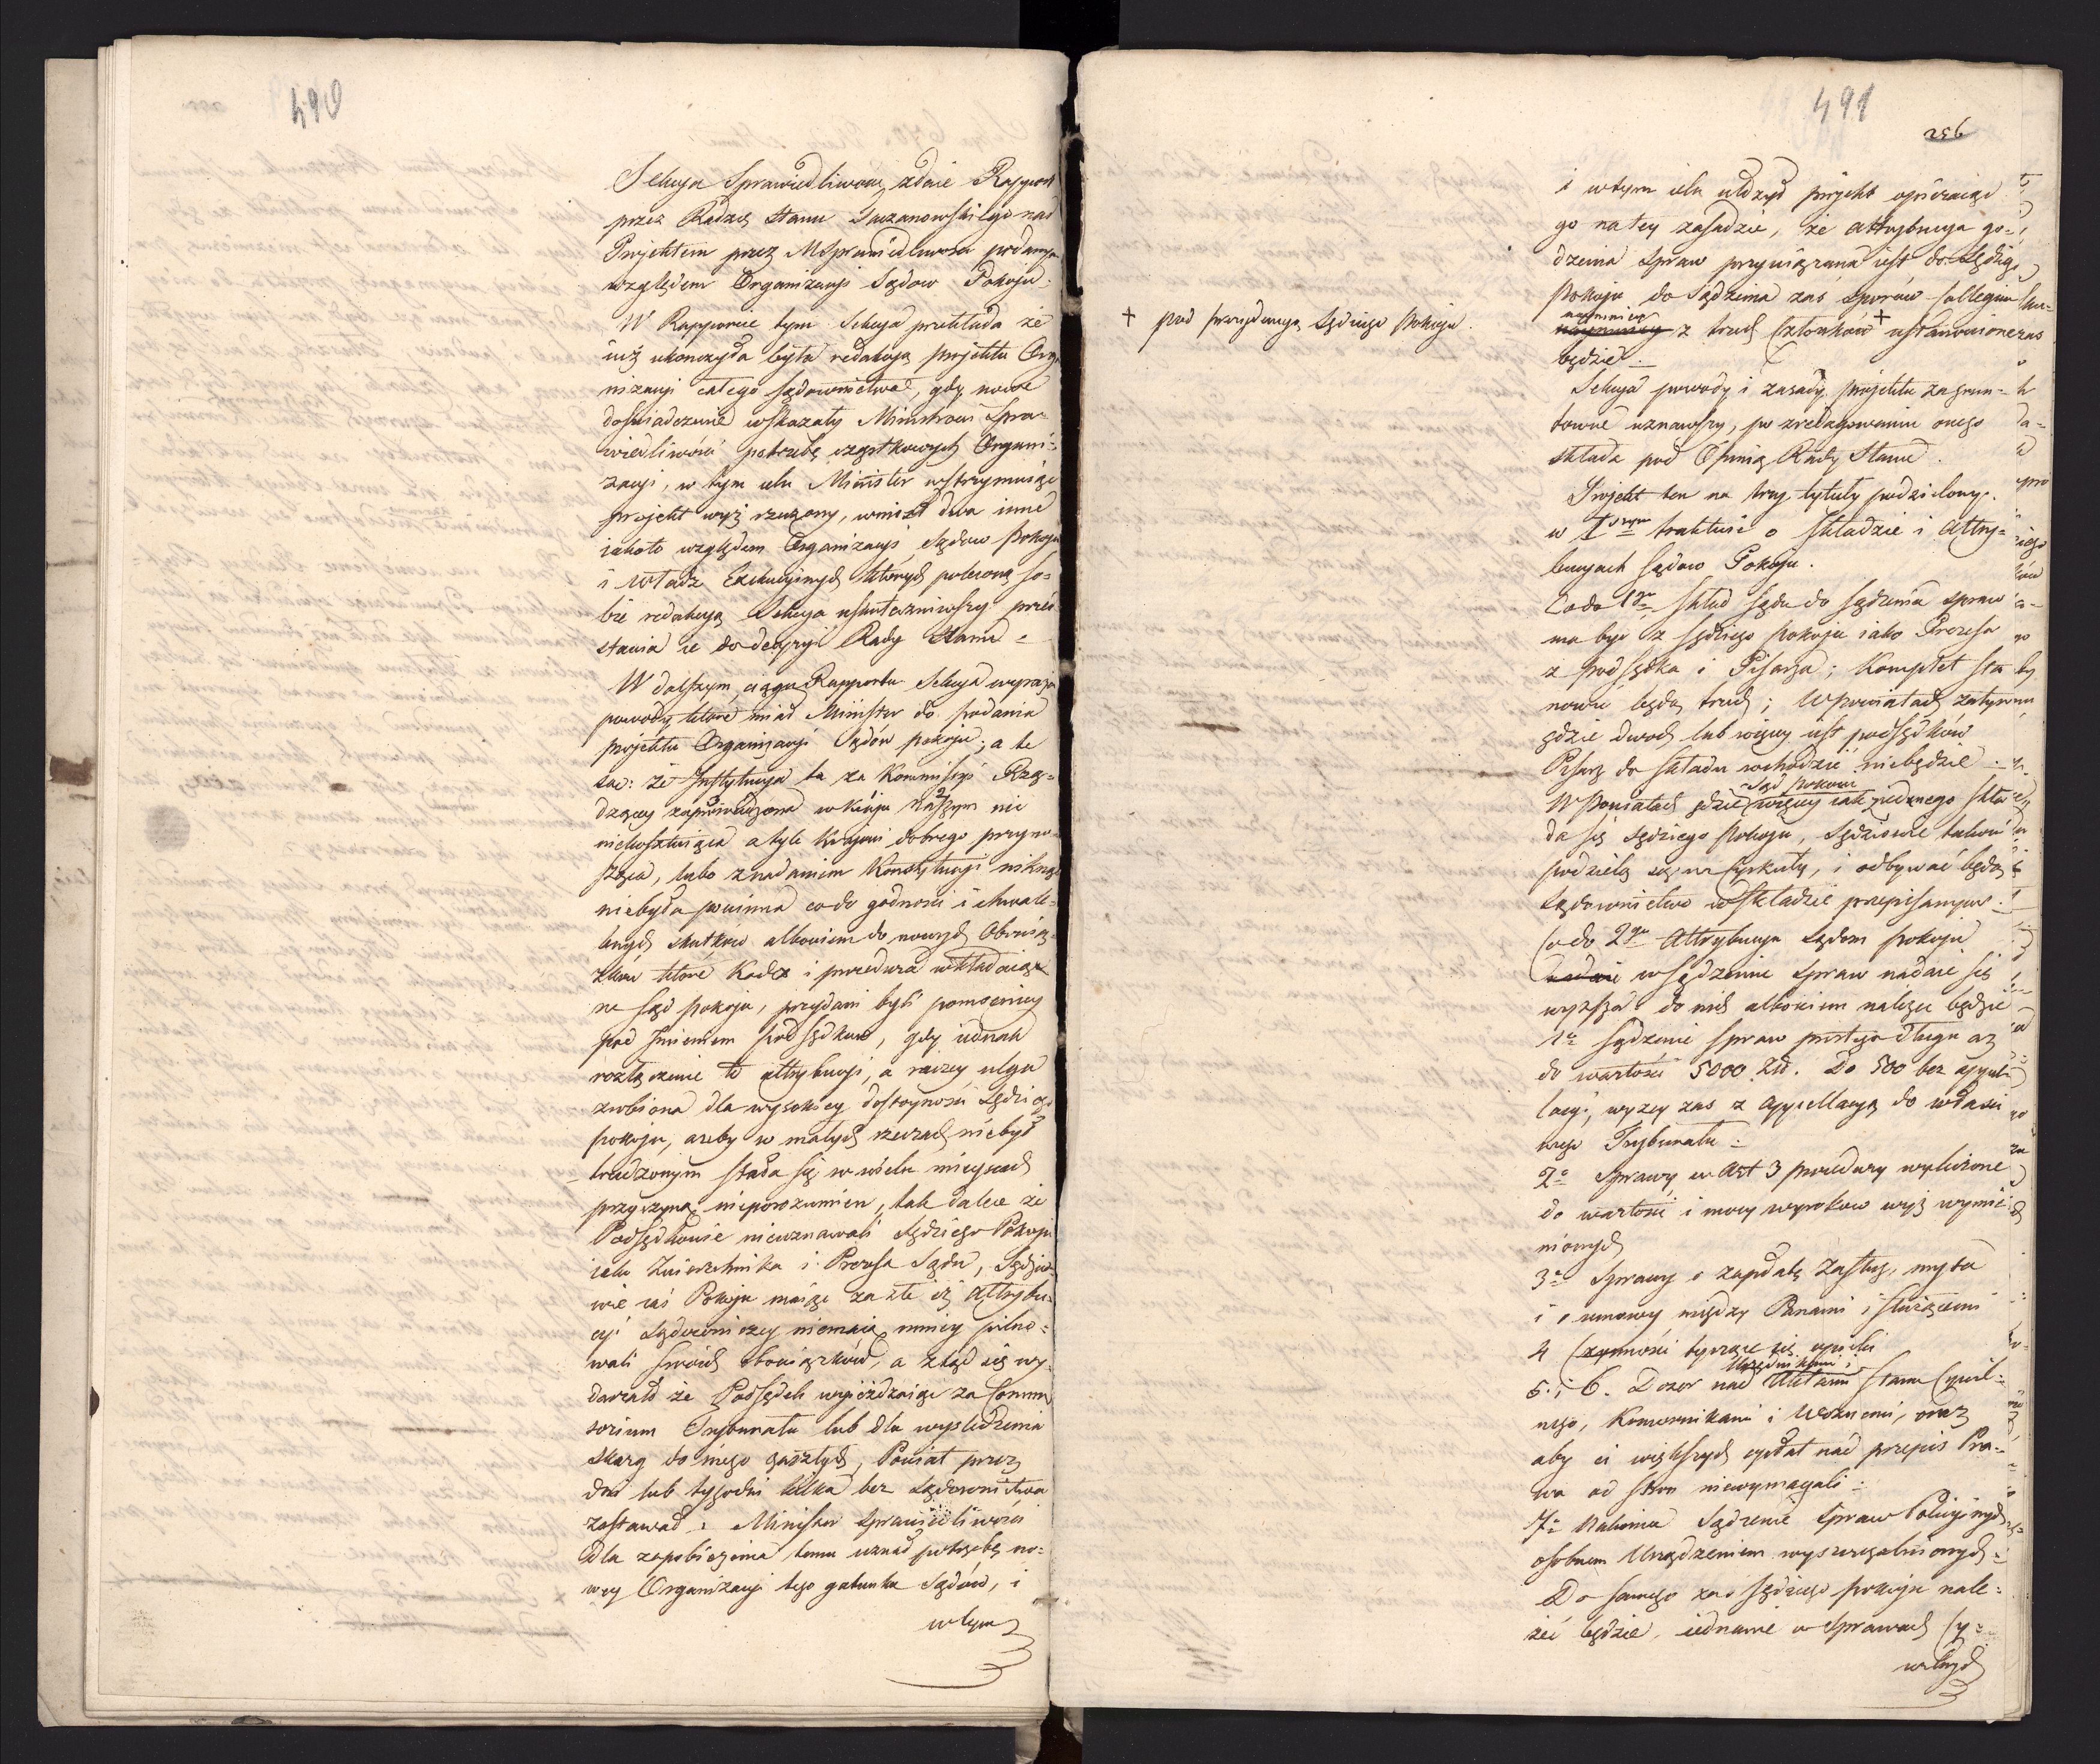 490
Sekcya Sprawiedliwości zdaie Rapport
przez Radzcę Stanu nad
Projektem przez M Sprawiedliwości podanym
względem Organizacyi Sądow Pokoju.
W Rapporcie tym Sekcya przekłada że
iuż ukonczyła była redakcyą projektu Orga
nizacyi całego sądownictwa, gdy nowe
doświadczenie wskazały Ministrowi Spra-
wiedliwości potrzebę cząstkowych Organi-
zacyi, w tym celu Minister wstrzymuiąc
projekt wyż rzeczony, wniosł dwa inne
iakoto względem Organizacyi Sądow Pokoju
i Władz Exekucyinych których poleconą so-
bie redakcyą Sekcya uskuteczniwszy przed
stawia ie do decyzyi Rady Stanu -
W dalszym ciągu Rapportu Sekcya wyraża
powody które miał Minister do podania
projektu Organizacyi Sądow pokoju; a te
są: że Instytucya ta za Kommissyi Rzą-
dzącey zaprowadzona w kraju naszym nic
niekosztuiąca a tyle Kraiowi dobrego przyno
sząca, lubo z nadaniem Konstytucyi niknąć
niebyła powinna co do godności i chwale-
bnych skutków albowiem do nowych Obowią-
zków które Kodex i procedura wkładaiąc
na sąd pokoju, przydani byli pomocnicy
pod imieniem podsędkow, gdy iednak
rozłączenie te attrybucyi, a raczey ulga
zrobiona dla wysokiey dostoyności Sędziego
pokoju, ażeby w małych rzeczach niebył
trudzonym stała się w wielu mieyscach
przyczyną nieporozumien, tak dalece że
Podsędkowie nieuznawali Sędziego Pokoju
iako Zwierzchnika i Prezesa Sądu, Sędzio-
wie zaś Pokoju maiąc za złe iż Attrybu-
cyi Sądowniczey niemaią mniey pilno-
wali swoich obowiązków, a ztąd się wy
darzało że Podsędek wyieżdzaiąc za Commi
ssorium Trybunału lub dla wyśledzenia
skarg do niego zaszłych, Powiat przez
dni lub tygodni kilka bez sądownictwa
zostawał. Minister Sprawiedliwości
dla zapobieżenia temu uznał potrzebę no-
wey Organizacyi tego gatunku Sądów, i
w tym
491
256
i w tym celu ułożył projekt opieraiąc
go na tey zasadzie, że attrybucya go-
dzenia Spraw przywiązana iest do Sędziego
Pokoju do sądzenia zaś sporów Collegium
naymniey
z trzech Członków + ustanowione
będzie.
+ pod prezydencyą Sędziego Pokoju.
Sekcya powody i zasady projektu za grun-
towne uznawszy, po zredagowaniu onego
składa pod Opinią Rady Stanu.
Projekt ten na trzy tytuły podzielony.
w 1szym traktuie o składzie i attry-
bucyach Sądow Pokoju.
Co do 1go skład sądu do sądzenia spraw
ma być z sędziego pokoju iako Prezesa
z podsędka i Pisarza; Komplet sta
nowić będą trzech; W powiatach zatym
gdzie dwóch lub więcey iest podsędków
Pisarz do składu wchodzić niebędzie.
Sąd pokoiu
W Powiatach gdzie więcey iak z iednego skła
da się Sędziego Pokoju, Sędziowie takowi
podzielą się na Cyrkuły, i odbywać będą
sądownictwo w składzie przepisanym.
Co do 2go Attrybucya Sądom pokoju
w sądzenie Spraw nadaie się
wyższa do nich albowiem należeć będzie
1o Sądzenie Spraw prostego długu aż
do wartości 5000 Zł. Do 500 bez appel-
lacyi, wyżey zas z appellacyą do właści
wego Trybunału.
2o Sprawy w Art 3 procedury wyliczone
do wartości i mocy wyroków wyż wymie
nionych
3o Sprawy o zapłatę zasług, myta
i o umowy między Panami i służącemi
4 Czynności tyczące się opieki
Urzędnikami i
5. i 6. Dozor nad Aktami Stanu Cywil-
nego, Komornikami i Woznemi, oraz
aby ci większych opłat nad przepis Pra-
wa od stron niewymagali.
7o Nakoniec Sądzenie Spraw Policyinych
osobnem Urządzeniem wyszczegolnionych.
Do samego zaś Sędziego pokoju nale-
żeć będzie, iednanie w Sprawach Cy-
wilnych